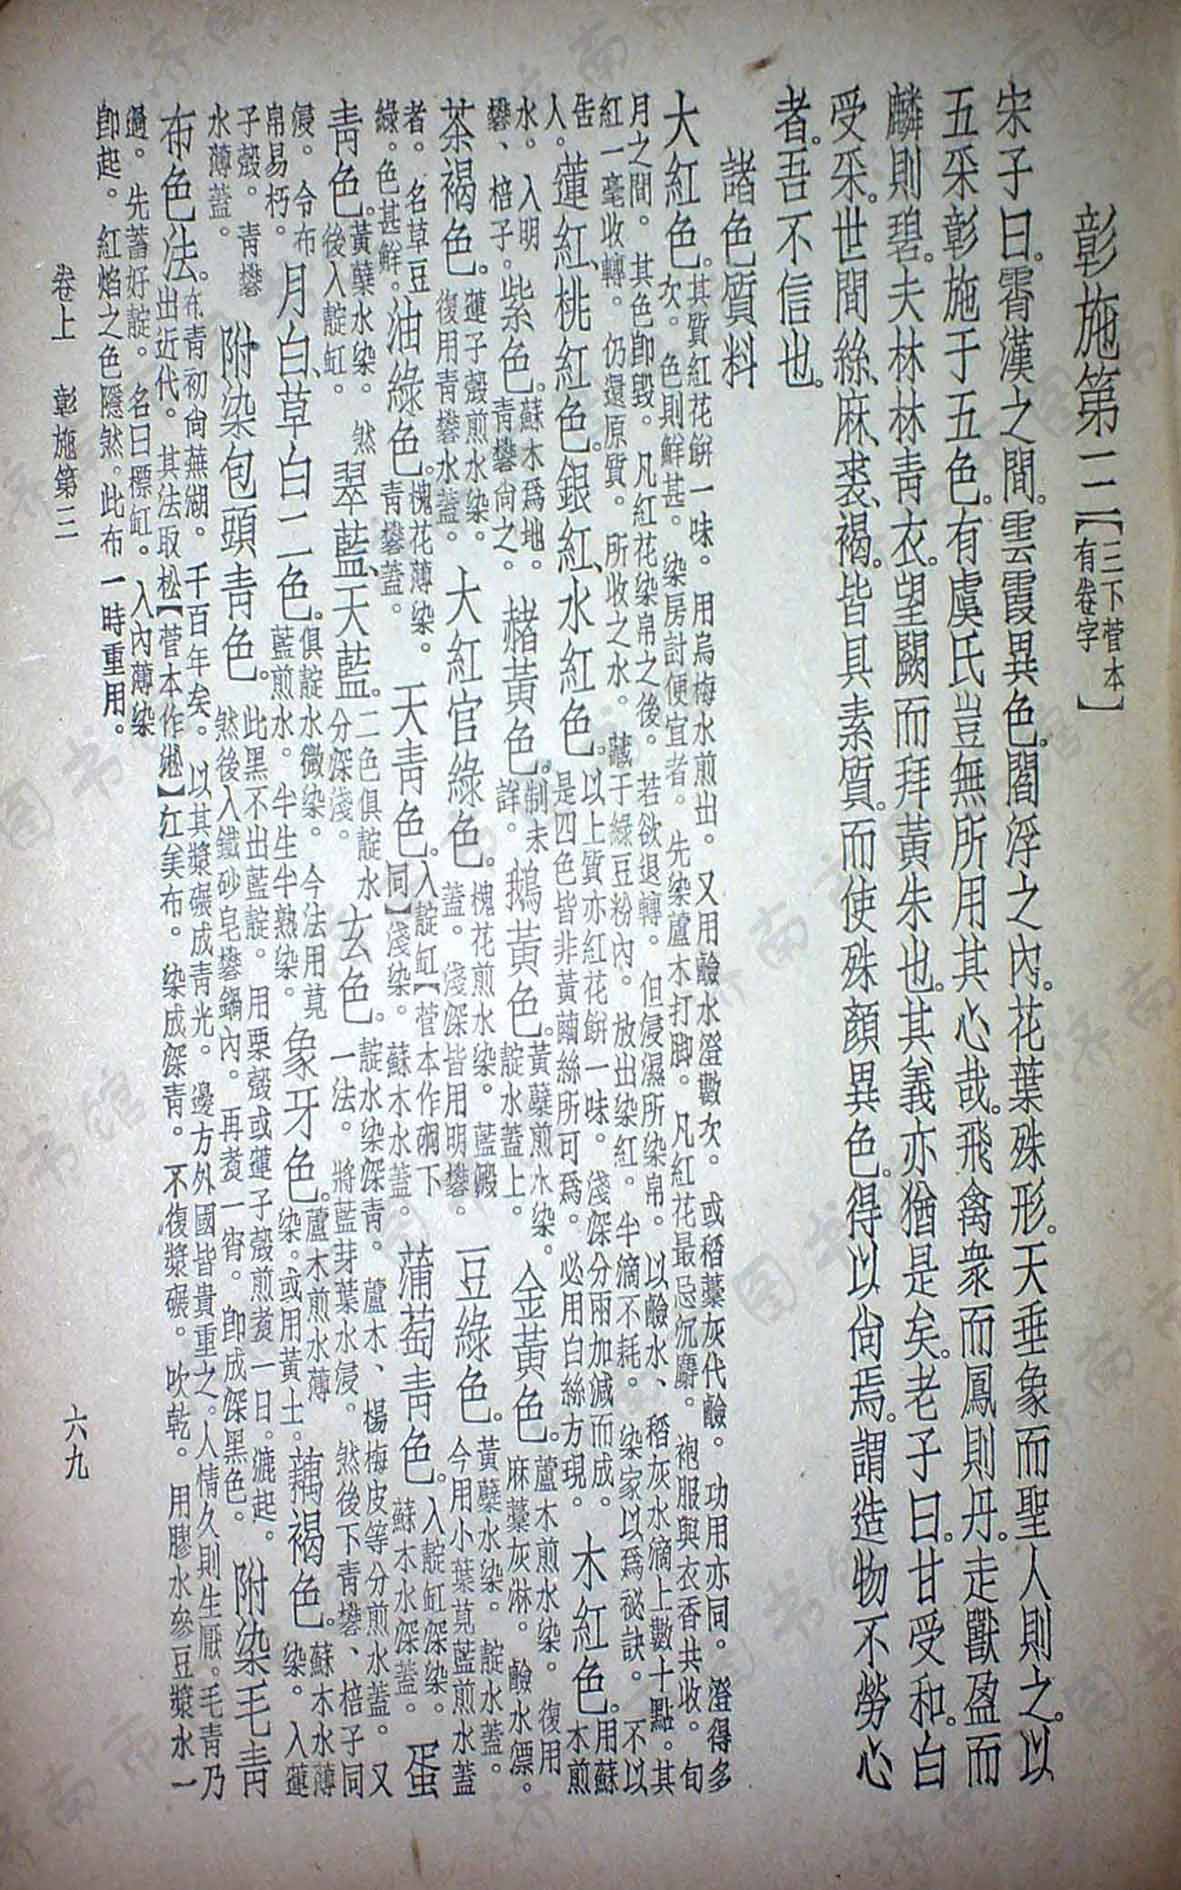 彰施第三【三下菅本有卷字】
宋子曰。霄漢之間。雲霞異色。閻浮之內。花葉殊形。天垂象而聖人則之。以
五采彰施于五色。有虞氏豈無所用其心哉。飛禽衆而鳳則丹。走獸盈而
麟則碧。夫林林青衣。望闕而拜黃朱也。其義亦猶是矣。老子曰。甘受和。白
受采。世間絲、麻、裘、褐。皆具素質。而使殊顏異色。得以尙焉。謂造物不勞心
者。吾不信也。
諸色質料
大紅色。其質紅花餠一味。用烏梅水煎出。又用鹼水澄數次。或稻藁灰代鹼。功用亦同。澄得多次。色則鮮甚。染房討便宜者。先染蘆木打脚。凡紅花最忌沉麝。袍服與衣香共收。旬
月之間。其色卽毀。凡紅花染帛之後。若欲退轉。但浸濕所染帛。以鹼水、稻灰水滴上數十點。其紅一毫收轉。仍還原質。所收之水。藏于綠豆粉內。放出染紅。半滴不耗。染家以爲祕訣。不以
告人。蓮紅、桃紅色。銀紅、水紅色。以上質亦紅花餠一味。淺深分兩加減而成。是四色皆非黃繭絲所可爲。必用白絲方現。木紅色。用蘇木煎
水。入明礬、棓子。紫色。蘇木爲地。青礬尙之。赭黃色。制未詳。鵝黃色。黃蘗煎水染。靛水蓋上。金黃色。蘆木煎水染。復用麻藁灰淋。鹼水漂。
茶褐色。蓮子殼煎水染。復用青礬水蓋。大紅官綠色。槐花煎水染。藍澱蓋。淺深皆用明礬。豆綠色。黃蘗水染。靛水蓋。今用小葉莧藍煎水蓋
者。名草豆綠。色甚鮮。油綠色。槐花薄染。青礬蓋。天青色。入靛缸【菅本作碙下同】淺染。蘇木水蓋。蒲萄青色。入靛缸深染。蘇木水深蓋。蛋
青色。黃蘗水染。然後入靛缸。翠藍、天藍。二色俱靛水分深淺。玄色。靛水染深青。蘆木、楊梅皮等分煎水蓋。又一法。將藍芽葉水浸。然後下青礬、棓子同
浸。令布帛易朽。月白、草白二色。俱靛水微染。今法用莧藍煎水。半生半熟染。象牙色。蘆木煎水薄染。或用黃土。藕褐色。蘇木水薄染。入蓮
子殼。青礬水薄蓋。附染包頭青色。此黑不出藍靛。用栗殼或蓮子殼煎煑一日。漉起。然後入鐵砂皂礬鍋內。再煑一宵。卽成深黑色。附染毛青
布色法。布青初尙蕪湖。千百年矣。以其漿碾成青光。邊方外國皆貴重之。人情久則生厭。毛青乃出近代。其法取松【菅本作淞】江美布。染成深青。不復漿碾。吹乾。用膠水參豆漿水一
過。先蓄好靛。名曰標缸。入內薄染卽起。紅焰之色隱然。此布一時重用。
卷上 彰施第三 六九